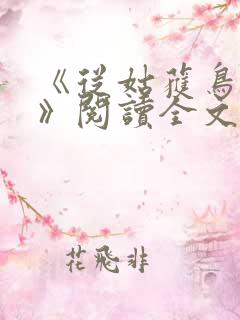 《從姑獲鳥
》閱讀全文
花飛非